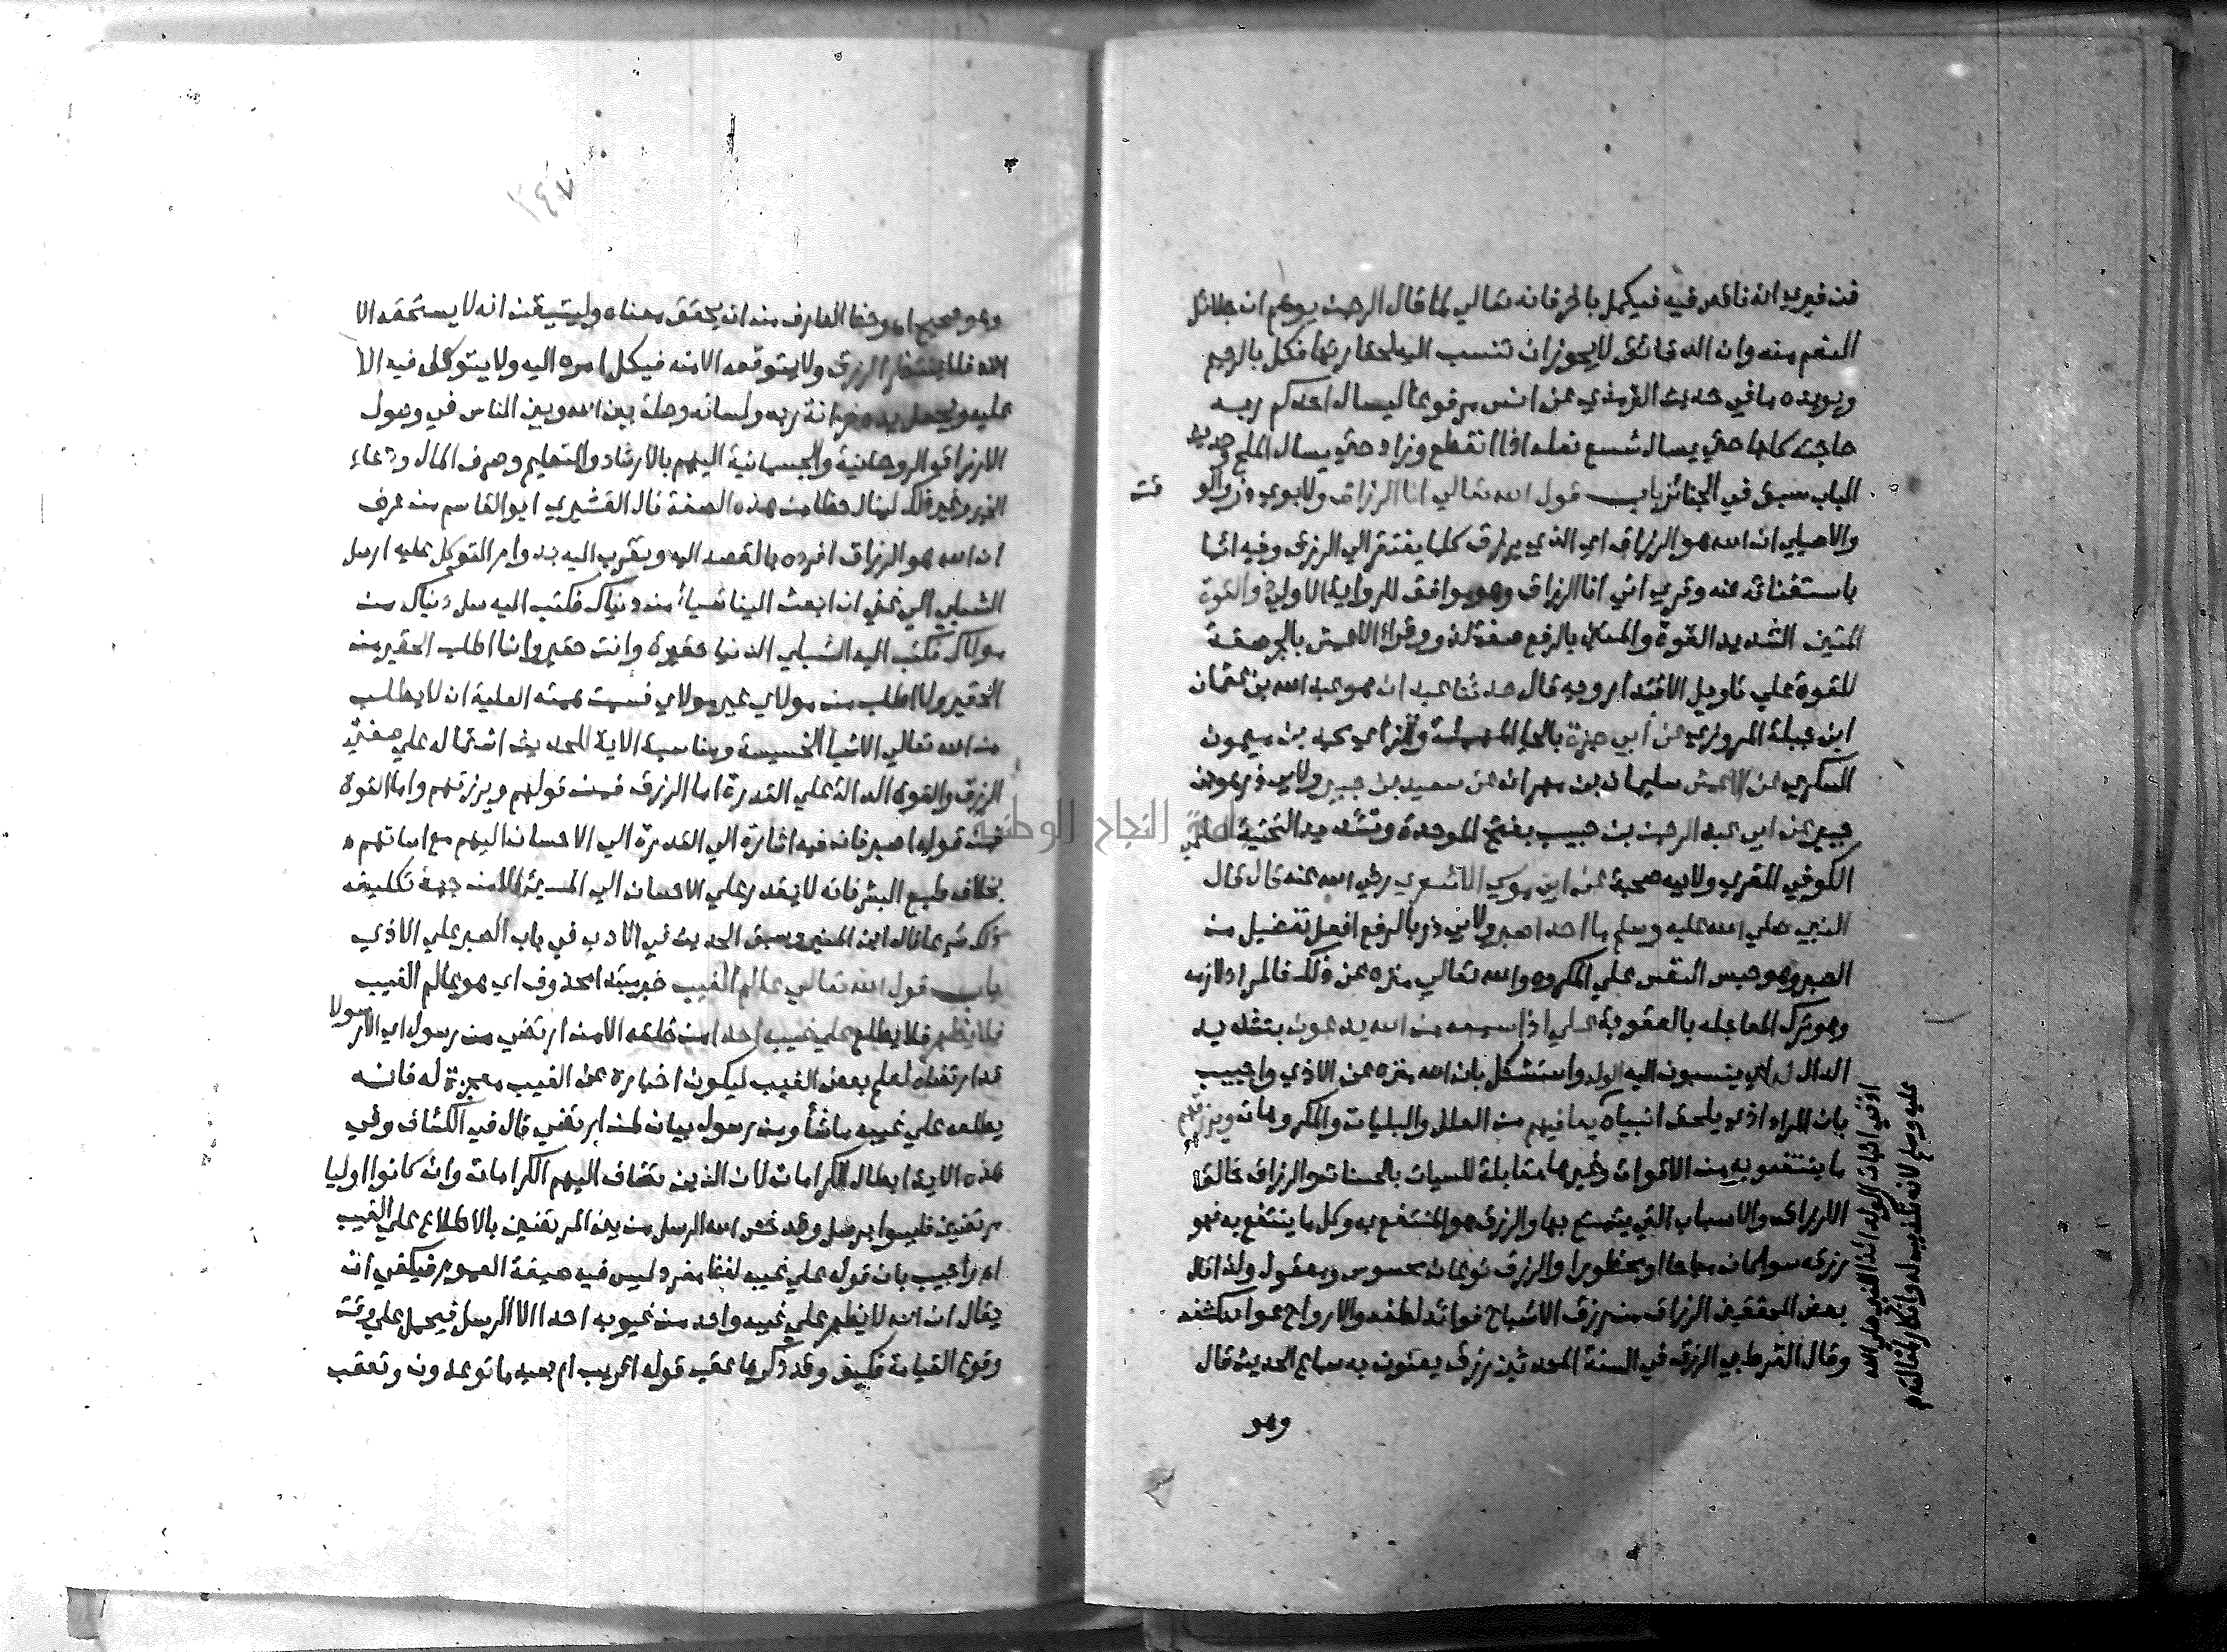 فن غيره انه ناقص فيه فيكمل بالاخر فانه تعالي لما قال الرحمن يوهم ان جلائل
النعم منه وان الدقائق لا يجوز ان تنسب اليه لحقارتها فكمل بالرحيم
ويويده ما في حديث الترمذي عن انس مرفوعا ليسال احدكم ربه
حاجته كلها حتي يسال شسع نعله اذا انقطع وزاد حتي يسال الملح وحديث
الباب سبق في الجنائز باب قول الله تعالي انا الرزاق ولابوي ذر والوقت
والاصيلي ان الله هو الرزاق اي الذي يرزق كلما يفتقر الي الرزق وفيه ايما
باستغنائه عنه وقري اني انا الرزاق وهو موافق للرواية الاولي ذو القوة
المتين الشديد القوة والمتين بالرفع صفة لذو وقراء الاعمش بالجر صفة
للقوة علي تاويل الاقتدار وبه قال حدثنا عبدان هو عبد الله بن عثمان
ابن جبلة المروزي عن ابي حمزة بالحا المهملة والزاي محمد بن ميمون
السكري عن الاعمش سليمان بن مهران عن سعيد بن جبير ولابي ذر هو ابن
جبير عن ابي عبد الرحمن بن حبيب بفتح الموحدة وتشديد التحتية السلمي
الكوفي المقري ولابيه صحبة عن ابي موسي الاشعري رضي الله عنه قال قال
النبي صلي الله عليه وسلم ما احد اصبر ولابي ذر بالرفع افعل تفضيل من
الصبر وهو حبس النفس علي المكروه والله تعالي منزه عن ذلك فالمراد لازمه
وهو ترك المعاجله بالعقوبة علي اذا سمعه من الله يدعون بتشديد
الدال له اي ينسبون اليه الولد واستشكل بان الله منزه عن الاذي واجيب
بان المراد اذي يلحق انبياه يعافيهم من العلل والبليات والمكروهات ويرزقهم
ما ينتفعو به من الاقوات وغيرها مقابلة للسيات بالحسنات والرزاق خالق
الارزاق والاسباب التي يتمتع بها والرزق هو المنتفع به وكل ما ينتفع به فهو
رزقه سوا كان مباحا او محظورا والرزق نوعان محسوس ومعقول ولذا قال
بعض المحققين الرزاق من رزق الاشباح فوائد لطفه والارواح عوائد كشفه
وقال القرطبي الرزق في السنة المحدثين رزق يعنون به سماع الحديث قال
وهو
اذ في اثبات الولد ايذا النبي صلي الله
عليه وسلم لانه تكذيب له وانكار لمقالته
٣٤٧
وهو صحيح اه وحظ العارف منه انه يحقق معناه وليتيقن انه لا يستحقه الا
الله فلا ينتظر الرزق ولا يتوقعه الا منه فيكل امره اليه ولا يتوكل فيه الا
عليه ويجعل يده خزانة ربه ولسانه وصلة بين الله وبين الناس في وصول
الارزاق الروحانية والجسمانية اليهم بالارشاد والتعليم وصرف المال ودعاء
الخير وغير ذلك لينال حظا من هذه الصفة قال القشيري ابو القاسم من عرف
ان الله هو الرزاق افرده بالقصد اليه وتقرب اليه بدوام التوكل عليه ارسل
الشبلي الي غني ان ابعث الينا شيأ من دنياك فكتب اليه سل دنياك من
مولاك فكتب اليه الشبلي الدنيا حقيرة وانت حقير وانما اطلب الحقير من
الحقير ولا اطلب من مولاي غير مولاي فسمت همته العلية ان لا يطلب
من الله تعالي الاشيا الخسيسة ومناسبة الاية للحديث اشتماله علي صفتي
الرزق والقوة الدالة علي القدرة اما الرزق فمن قولهم ويرزقهم واما القوة
فمن قوله اصبر فان فيه اشارة الي القدرة الي الاحسان اليهم مع اساتهم
بخلاف طبع البشر فانه لا يقدر علي الاحسان الي المسي الا من جهة تكليفه
ذلك شرعا قاله ابن المنير وسبق الحديث في الادب في باب الصبر علي الاذي
باب قول الله تعالي عالم الغيب خبر مبتدا محذوف اي هو عالم الغيب
فلا يظهر فلا يطلع علي غيبه احدا من خلقه الا من ارتضي من رسول اي الا رسولا
قد ارتضاه لعلم بعض الغيب ليكون اخباره عن الغيب معجزة له فانه
يطلعه علي غيبه ما شأ ومن رسول بيان لمن ارتضي قال في الكشاف وفي
هذه الاية ابطال الكرامات لان الذين تضاف اليهم الكرامات وان كانوا اوليا
مرتضين فليسوا برسل وقد خص الله الرسل من بين المرتضين بالاطلاع علي الغيب
اه واجيب بان قوله علي غيبه لفظ مفرد ليس فيه صيغة العموم فيكفي ان
يقال ان الله لا يظهر علي غيب واحد من غيوبه احدا الا الرسل فيحمل علي وقت
وقوع القيامة فكيف وقد ذكرها عقب قوله اقريب ام بعيد ما توعدون وتعقب